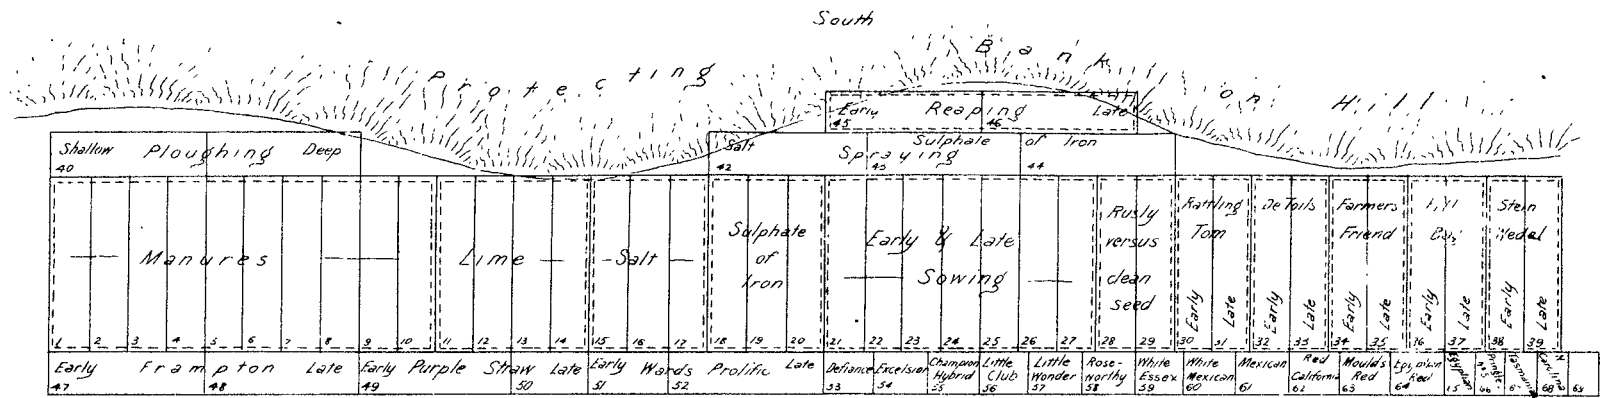 South
Protecting Bank on Hill
Early Reaping Late
45 46
Shallow Ploughing Deep
40
Salt Spraying Sulphate of Iron
42 43 44
Manures
Lime
Salt
Sulphate
of
Iron
Early & Late
Sowing
Rusty
versus
clean
seed
Rattling
Tom
Early Late
De Toils
Early Late
Farmers
Friend
Early Late
Early Late
Stein
Wedel
Early Late
1 2 3 4 5 6 7 8 9 10 11 12 13 14 15 16 17 18 19 20 21 22 23 24 25 26 27 28 29 30 31 32 33 34 35 36 37 38 39
Early Frampton Late
47 48
Early Purple Straw Late
49 50
Early Wards Prolific Late
51 52
Defiance
53
Excelsior
54
Champion
Hybrid
55
Little
Club
56
Little
Wonder
57
Rose-
worthy
58
White
Essex
59
White
Mexican
60
Mexican
61
Red
California
62
Mould's
Red
63
Egyptian
Red
64
Pringle
66
Tasmania
Carolina
68
69